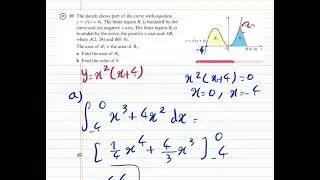 P 10 The sketch shows part of the curve with equation
y = x²(x + 4). The finite region R₁ is bounded by the
curve and the negative x-axis. The finite region R₂ is
bounded by the curve, the positive x-axis and AB,
where A(2, 24) and B(b, 0).
The area of R₁ = the area of R₂.
a Find the area of R₁.
b Find the value of b.
y = x²(x+4)
x²(x+4) = 0
x = 0, x = -4
a)
∫ 0 -4 x³ + 4x² dx =
= [ 1/4 x⁴ + 4/3 x³ ] 0 -4